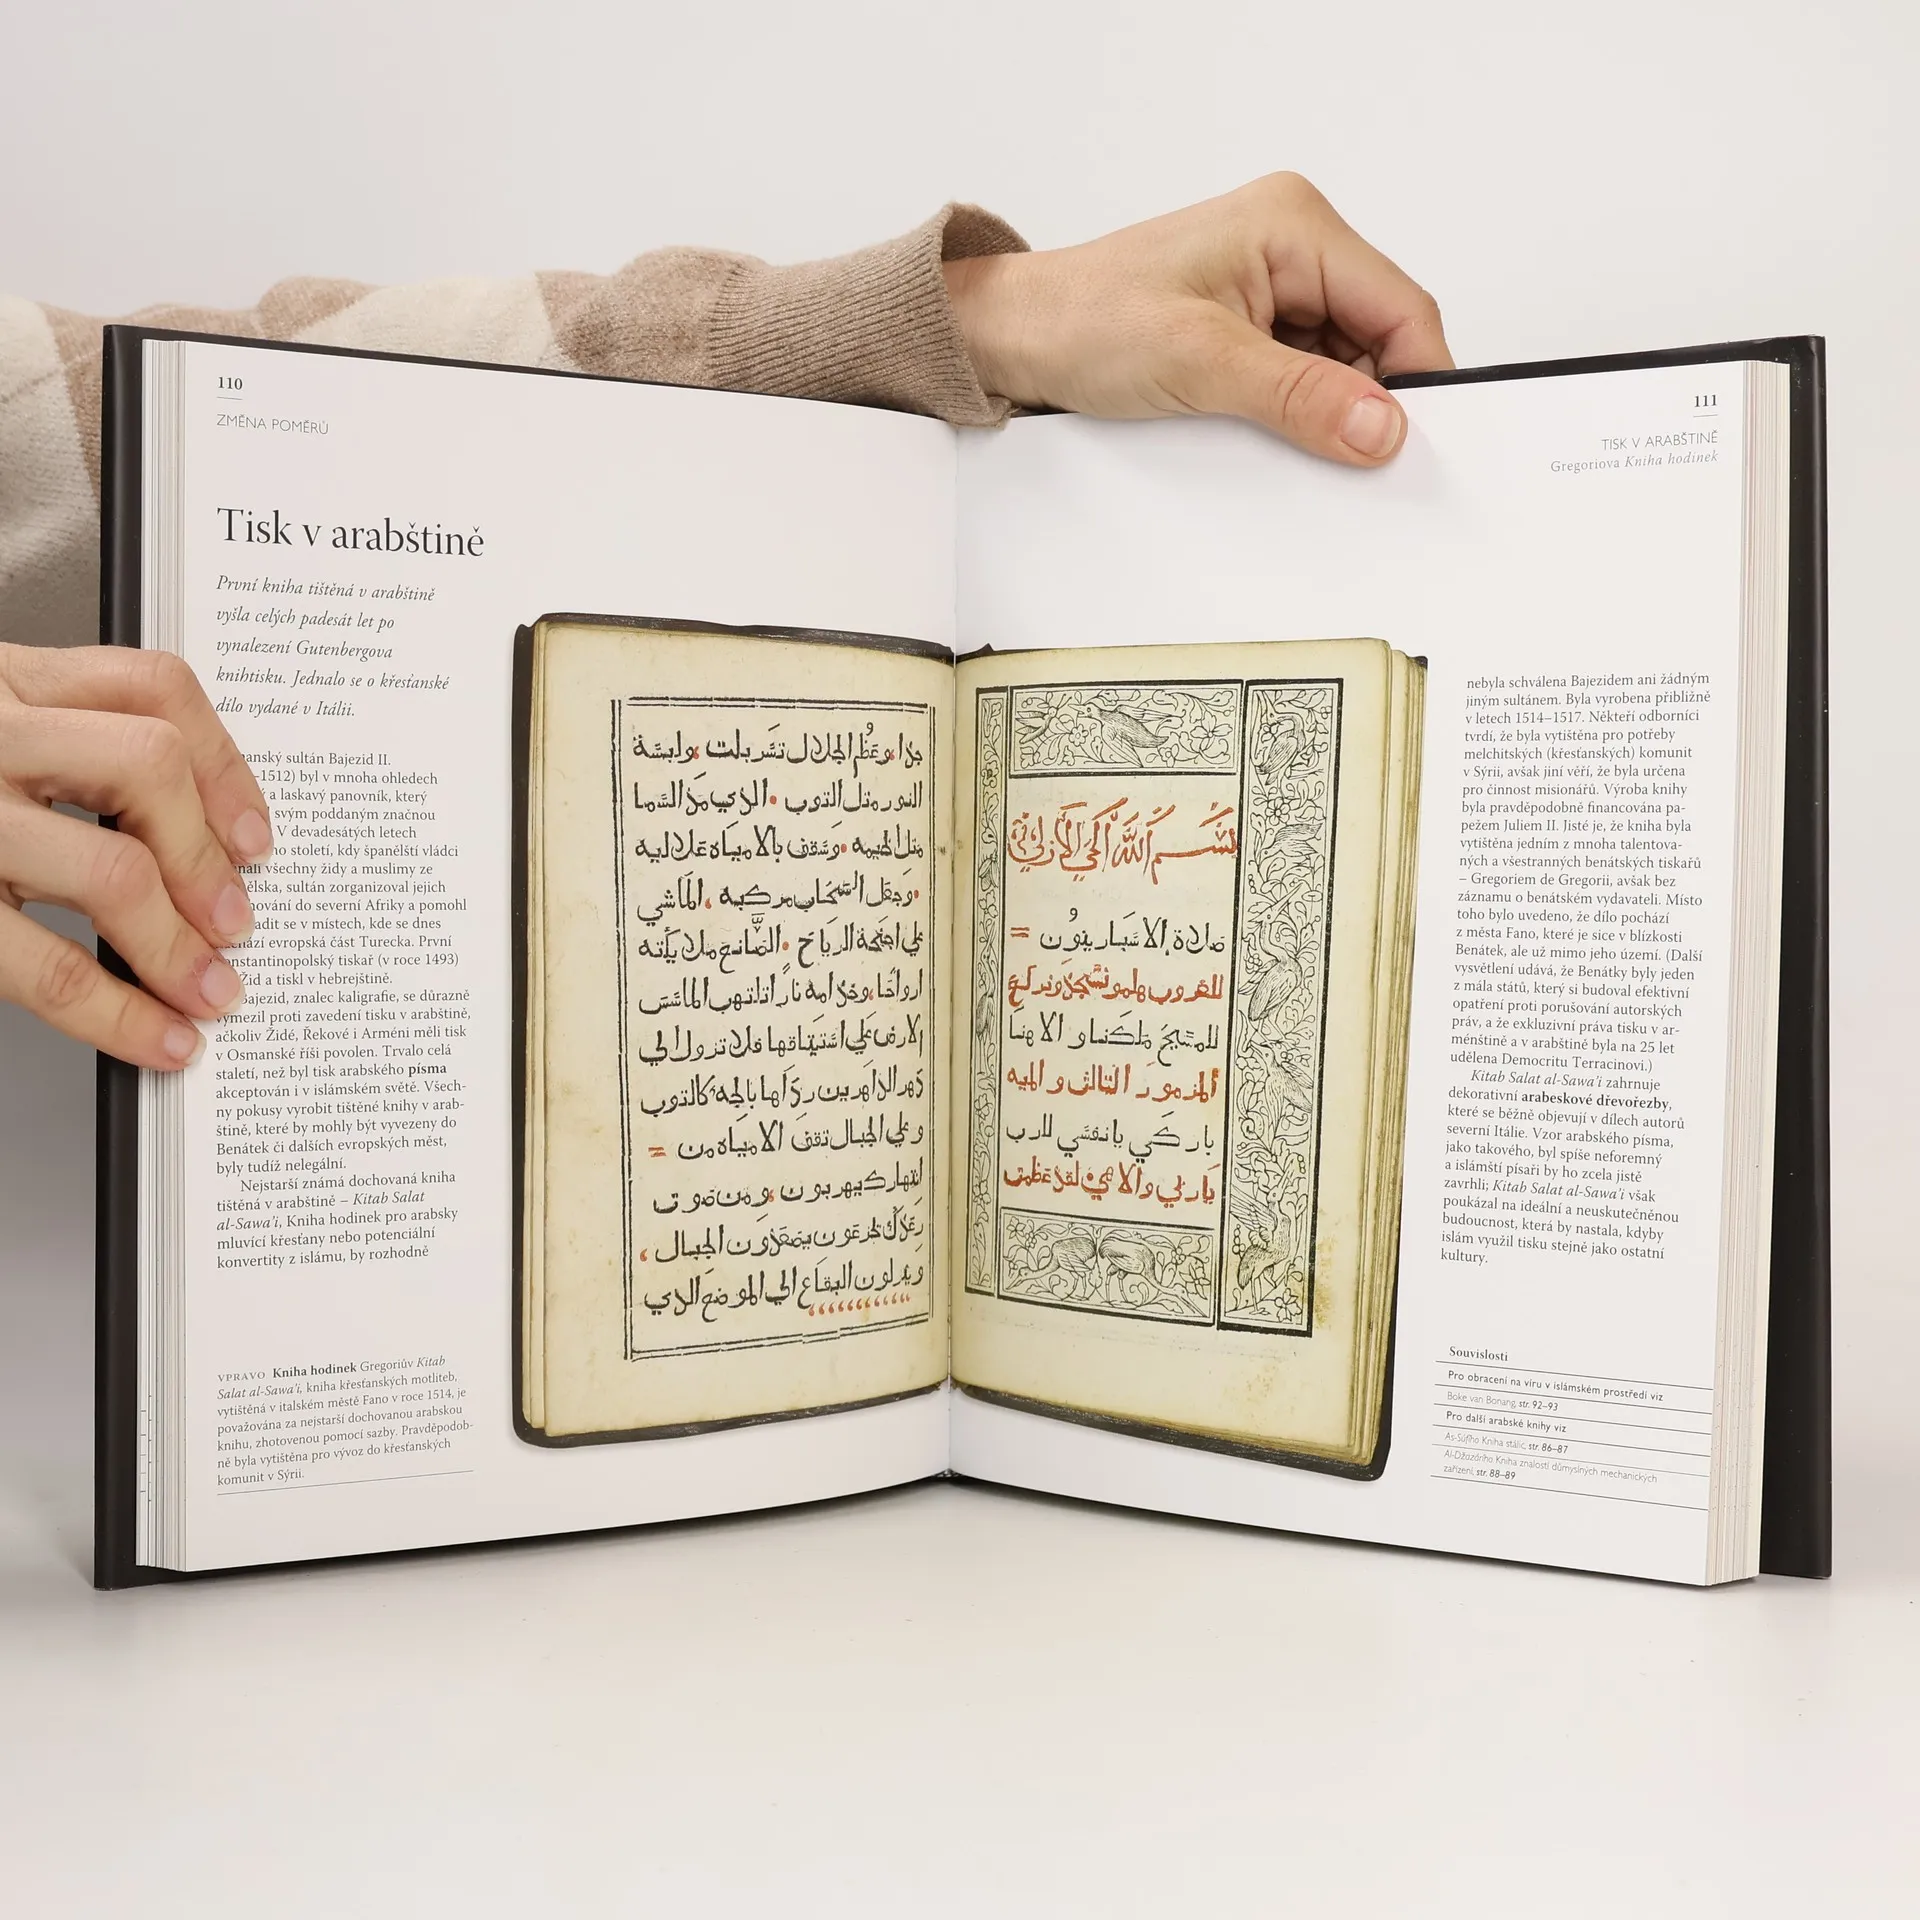 110
ZMĚNA POMĚRŮ
Tisk v arabštině
První kniha tištěná v arabštině
vyšla celých padesát let po
vynalezení Gutenbergova
knihtisku. Jednalo se o křesťanské
dílo vydané v Itálii.
sultán Bajezid II.
–1512) byl v mnoha ohledech
a laskavý panovník, který
svým poddaným značnou
V devadesátých letech
století, kdy španělští vládci
všechny židy a muslimy ze
sultán zorganizoval jejich
do severní Afriky a pomohl
se v místech, kde se dnes
evropská část Turecka. První
tiskař (v roce 1493)
Žid a tiskl v hebrejštině.
Bajezid, znalec kaligrafie, se důrazně
vymezil proti zavedení tisku v arabštině,
ačkoliv Židé, Řekové i Arméni měli tisk
v Osmanské říši povolen. Trvalo celá
staletí, než byl tisk arabského písma
akceptován i v islámském světě. Všech-
ny pokusy vyrobit tištěné knihy v arab-
štině, které by mohly být vyvezeny do
Benátek či dalších evropských měst,
byly tudíž nelegální.
Nejstarší známá dochovaná kniha
tištěná v arabštině – Kitab Salat
al-Sawa'i, Kniha hodinek pro arabsky
mluvící křesťany nebo potenciální
konvertity z islámu, by rozhodně
VPRAVO Kniha hodinek Gregoriův Kitab
Salat al-Sawa'i, kniha křesťanských motliteb,
vytištěná v italském městě Fano v roce 1514, je
považována za nejstarší dochovanou arabskou
knihu, zhotovenou pomocí sazby. Pravděpodob-
ně byla vytištěna pro vývoz do křesťanských
komunit v Sýrii.
جدا وعظم الجلال تسربلت ولبسة
النور متل التوب الدي مد السما
متل الخيمه وسقف بالامياه علاليه
وجعل السحاب مركبه الماشي
علي اجنحة الرياح الصانع ملايكته
ارواحا وخدامه نارا تلتهب الماسس
الارض علي استيتاقها فلا تزول الي
دهر الداهرين رداها بالجه كالتوب
وعلي الجبال تقف الامياه من
انتهارك يهربون ومن صوت
رعدك يجزعون يصعدون الجبال
وينزلون البقاع الي الموضع الدي
بسم الله الحي الازلي
صلاة الاسبارينون
للغروب هلمو نسجد ونركع
للمسيح ملكنا و الاهنا
المزمور التالت و الميه
باركي يا نفسي للرب
يا ربي والاهي لقد عظمت
111
TISK V ARABŠTINĚ
Gregoriova Kniha hodinek
nebyla schválena Bajezidem ani žádným
jiným sultánem. Byla vyrobena přibližně
v letech 1514–1517. Někteří odborníci
tvrdí, že byla vytištěna pro potřeby
melchitských (křesťanských) komunit
v Sýrii, avšak jiní věří, že byla určena
pro činnost misionářů. Výroba knihy
byla pravděpodobně financována pa-
pežem Juliem II. Jisté je, že kniha byla
vytištěna jedním z mnoha talentova-
ných a všestranných benátských tiskařů
– Gregoriem de Gregorii, avšak bez
záznamu o benátském vydavateli. Místo
toho bylo uvedeno, že dílo pochází
z města Fano, které je sice v blízkosti
Benátek, ale už mimo jeho území. (Další
vysvětlení udává, že Benátky byly jeden
z mála států, který si budoval efektivní
opatření proti porušování autorských
práv, a že exkluzivní práva tisku v ar-
ménštině a v arabštině byla na 25 let
udělena Democritu Terracinovi.)
Kitab Salat al-Sawa'i zahrnuje
dekorativní arabeskové dřevořezby,
které se běžně objevují v dílech autorů
severní Itálie. Vzor arabského písma,
jako takového, byl spíše neforemný
a islámští písaři by ho zcela jistě
zavrhli; Kitab Salat al-Sawa'i však
poukázal na ideální a neuskutečněnou
budoucnost, která by nastala, kdyby
islám využil tisku stejně jako ostatní
kultury.
Souvislosti
Pro obracení na víru v islámském prostředí viz
Boke van Bonang, str. 92–93
Pro další arabské knihy viz
As-Súfího Kniha stálic, str. 86–87
Al-Džazáriho Kniha znalostí důmyslných mechanických
zařízení, str. 88–89